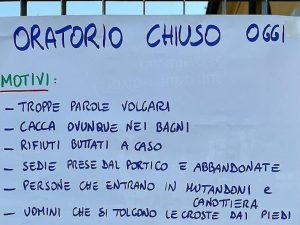 ORATORIO CHIUSO OGGI
MOTIVI:
- TROPPE PAROLE VOLGARI
- CACCA OVUNQUE NEI BAGNI
- RIFIUTI BUTTATI A CASO
- SEDIE PRESE DAL PORTICO E ABBANDONATE
- PERSONE CHE ENTRANO IN MUTANDONI E
CANOTTIERA
- UOMINI CHE SI TOLGONO LE CROSTE DAI PIEDI